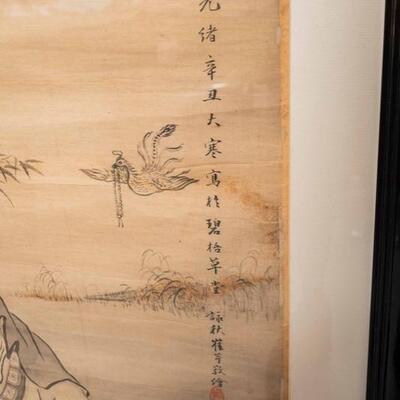 光緒辛丑大寒寫於碧梧草堂 詠秋崔芹敬繪